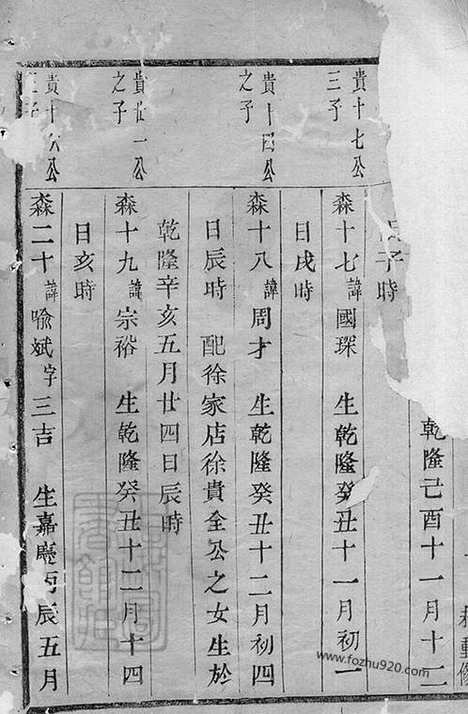 乾隆己酉十一月十二
日子時
貴十七公
三子
森十七諱國琛 生乾隆癸丑十一月初一
日戌時
貴十四公
之子
森十八諱周才 生乾隆癸丑十二月初四
日辰時 配徐家店徐貴全公之女生於
乾隆辛亥五月廿四日辰時
貴廿一公
之子
森十九諱宗裕 生乾隆癸丑十二月十四
日亥時
貴十六公
子
森二十諱喻斌字三吉 生嘉慶丙辰五月
www.fozhu920.com